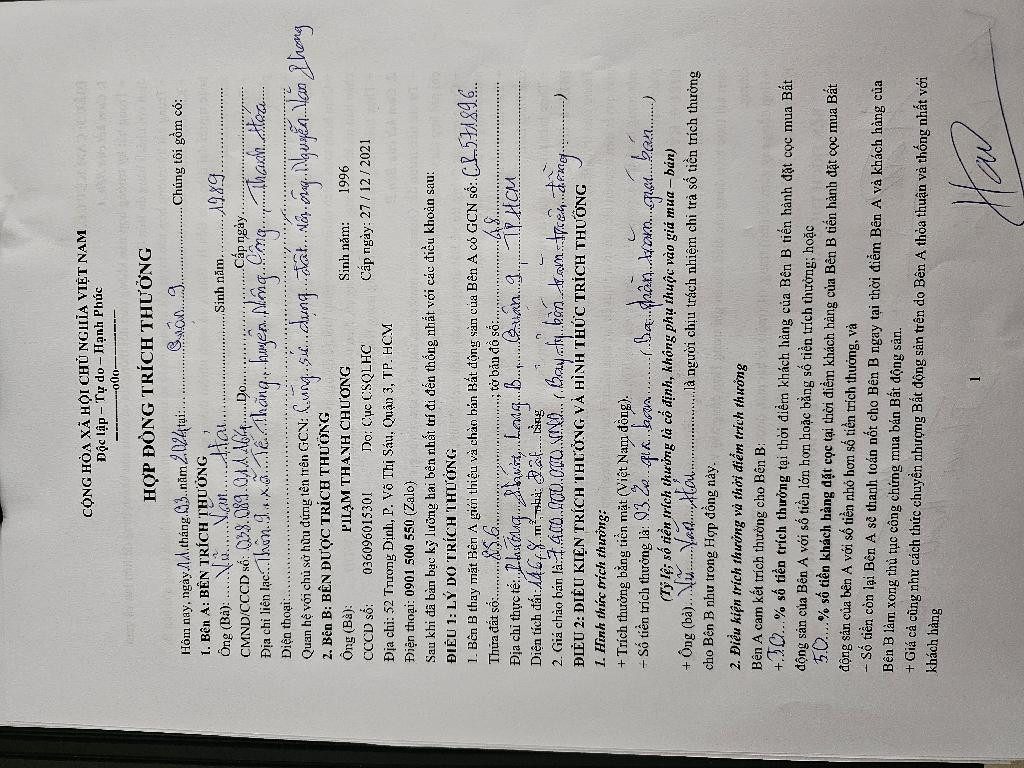 CỘNG HÒA XÃ HỘI CHỦ NGHĨA VIỆT NAM
Độc lập – Tự do – Hạnh Phúc
---------o0o---------
HỢP ĐỒNG TRÍCH THƯỞNG
Hôm nay, ngày 11 tháng 03 năm 2024 tại: Quận 9 Chúng tôi gồm có:
1. Bên A: BÊN TRÍCH THƯỞNG
Ông (Bà): Vũ Văn Hải Sinh năm 1989
CMND/CCCD số: Do Cấp ngày
Địa chỉ liên lạc: Thôn 9, xã Tế Thắng, huyện Nông Cống, Thanh Hóa
Điện thoại:
Quan hệ với chủ sở hữu đứng tên trên GCN: Cùng sử dụng đất với ông Nguyễn Văn Phong
2. Bên B: BÊN ĐƯỢC TRÍCH THƯỞNG
Ông (Bà): PHẠM THANH CHƯƠNG Sinh năm: 1996
CCCD số: 036096015301 Do: Cục CSQLHC Cấp ngày: 27 / 12 / 2021
Địa chỉ: 52 Trương Định, P. Võ Thị Sáu, Quận 3, TP. HCM
Điện thoại: 0901 500 550 (Zalo)
Sau khi đã bàn bạc kỹ lưỡng hai bên nhất trí đi đến thống nhất với các điều khoản sau:
ĐIỀU 1: LÝ DO TRÍCH THƯỞNG
1. Bên B thay mặt Bên A giới thiệu và chào bán Bất động sản của Bên A có GCN số: CR571896
Thửa đất số: 856; tờ bản đồ số: 48
Địa chỉ thực tế: Phường Phước Long B, Quận 9, TP HCM
Diện tích đất: 146,8 m², nhà: Đất bằng
2. Giá chào bán là: 7.400.000.000 (Bảy tỷ bốn trăm triệu đồng)
ĐIỀU 2: ĐIỀU KIỆN TRÍCH THƯỞNG VÀ HÌNH THỨC TRÍCH THƯỞNG
1. Hình thức trích thưởng:
+ Trích thưởng bằng tiền mặt (Việt Nam đồng).
– Số tiền trích thưởng là: 03% giá bán (Ba phần trăm giá bán)
(Tỷ lệ; số tiền trích thưởng là cố định, không phụ thuộc vào giá mua – bán)
+ Ông (bà): Vũ Văn Hải là người chịu trách nhiệm chi trả số tiền trích thưởng
cho Bên B như trong Hợp đồng này.
2. Điều kiện trích thưởng và thời điểm trích thưởng
Bên A cam kết trích thưởng cho Bên B:
+ 50 % số tiền trích thưởng tại thời điểm khách hàng của Bên B tiến hành đặt cọc mua Bất
động sản của Bên A với số tiền lớn hơn hoặc bằng số tiền trích thưởng; hoặc
50 % số tiền khách hàng đặt cọc tại thời điểm khách hàng của Bên B tiến hành đặt cọc mua Bất
động sản của bên A với số tiền nhỏ hơn số tiền trích thưởng, và
– Số tiền còn lại Bên A sẽ thanh toán nốt cho Bên B ngay tại thời điểm Bên A và khách hàng của
Bên B làm xong thủ tục công chứng mua bán Bất động sản.
+ Giá cả cũng như cách thức chuyển nhượng Bất động sản trên do Bên A thỏa thuận và thống nhất với
khách hàng
1
Hải